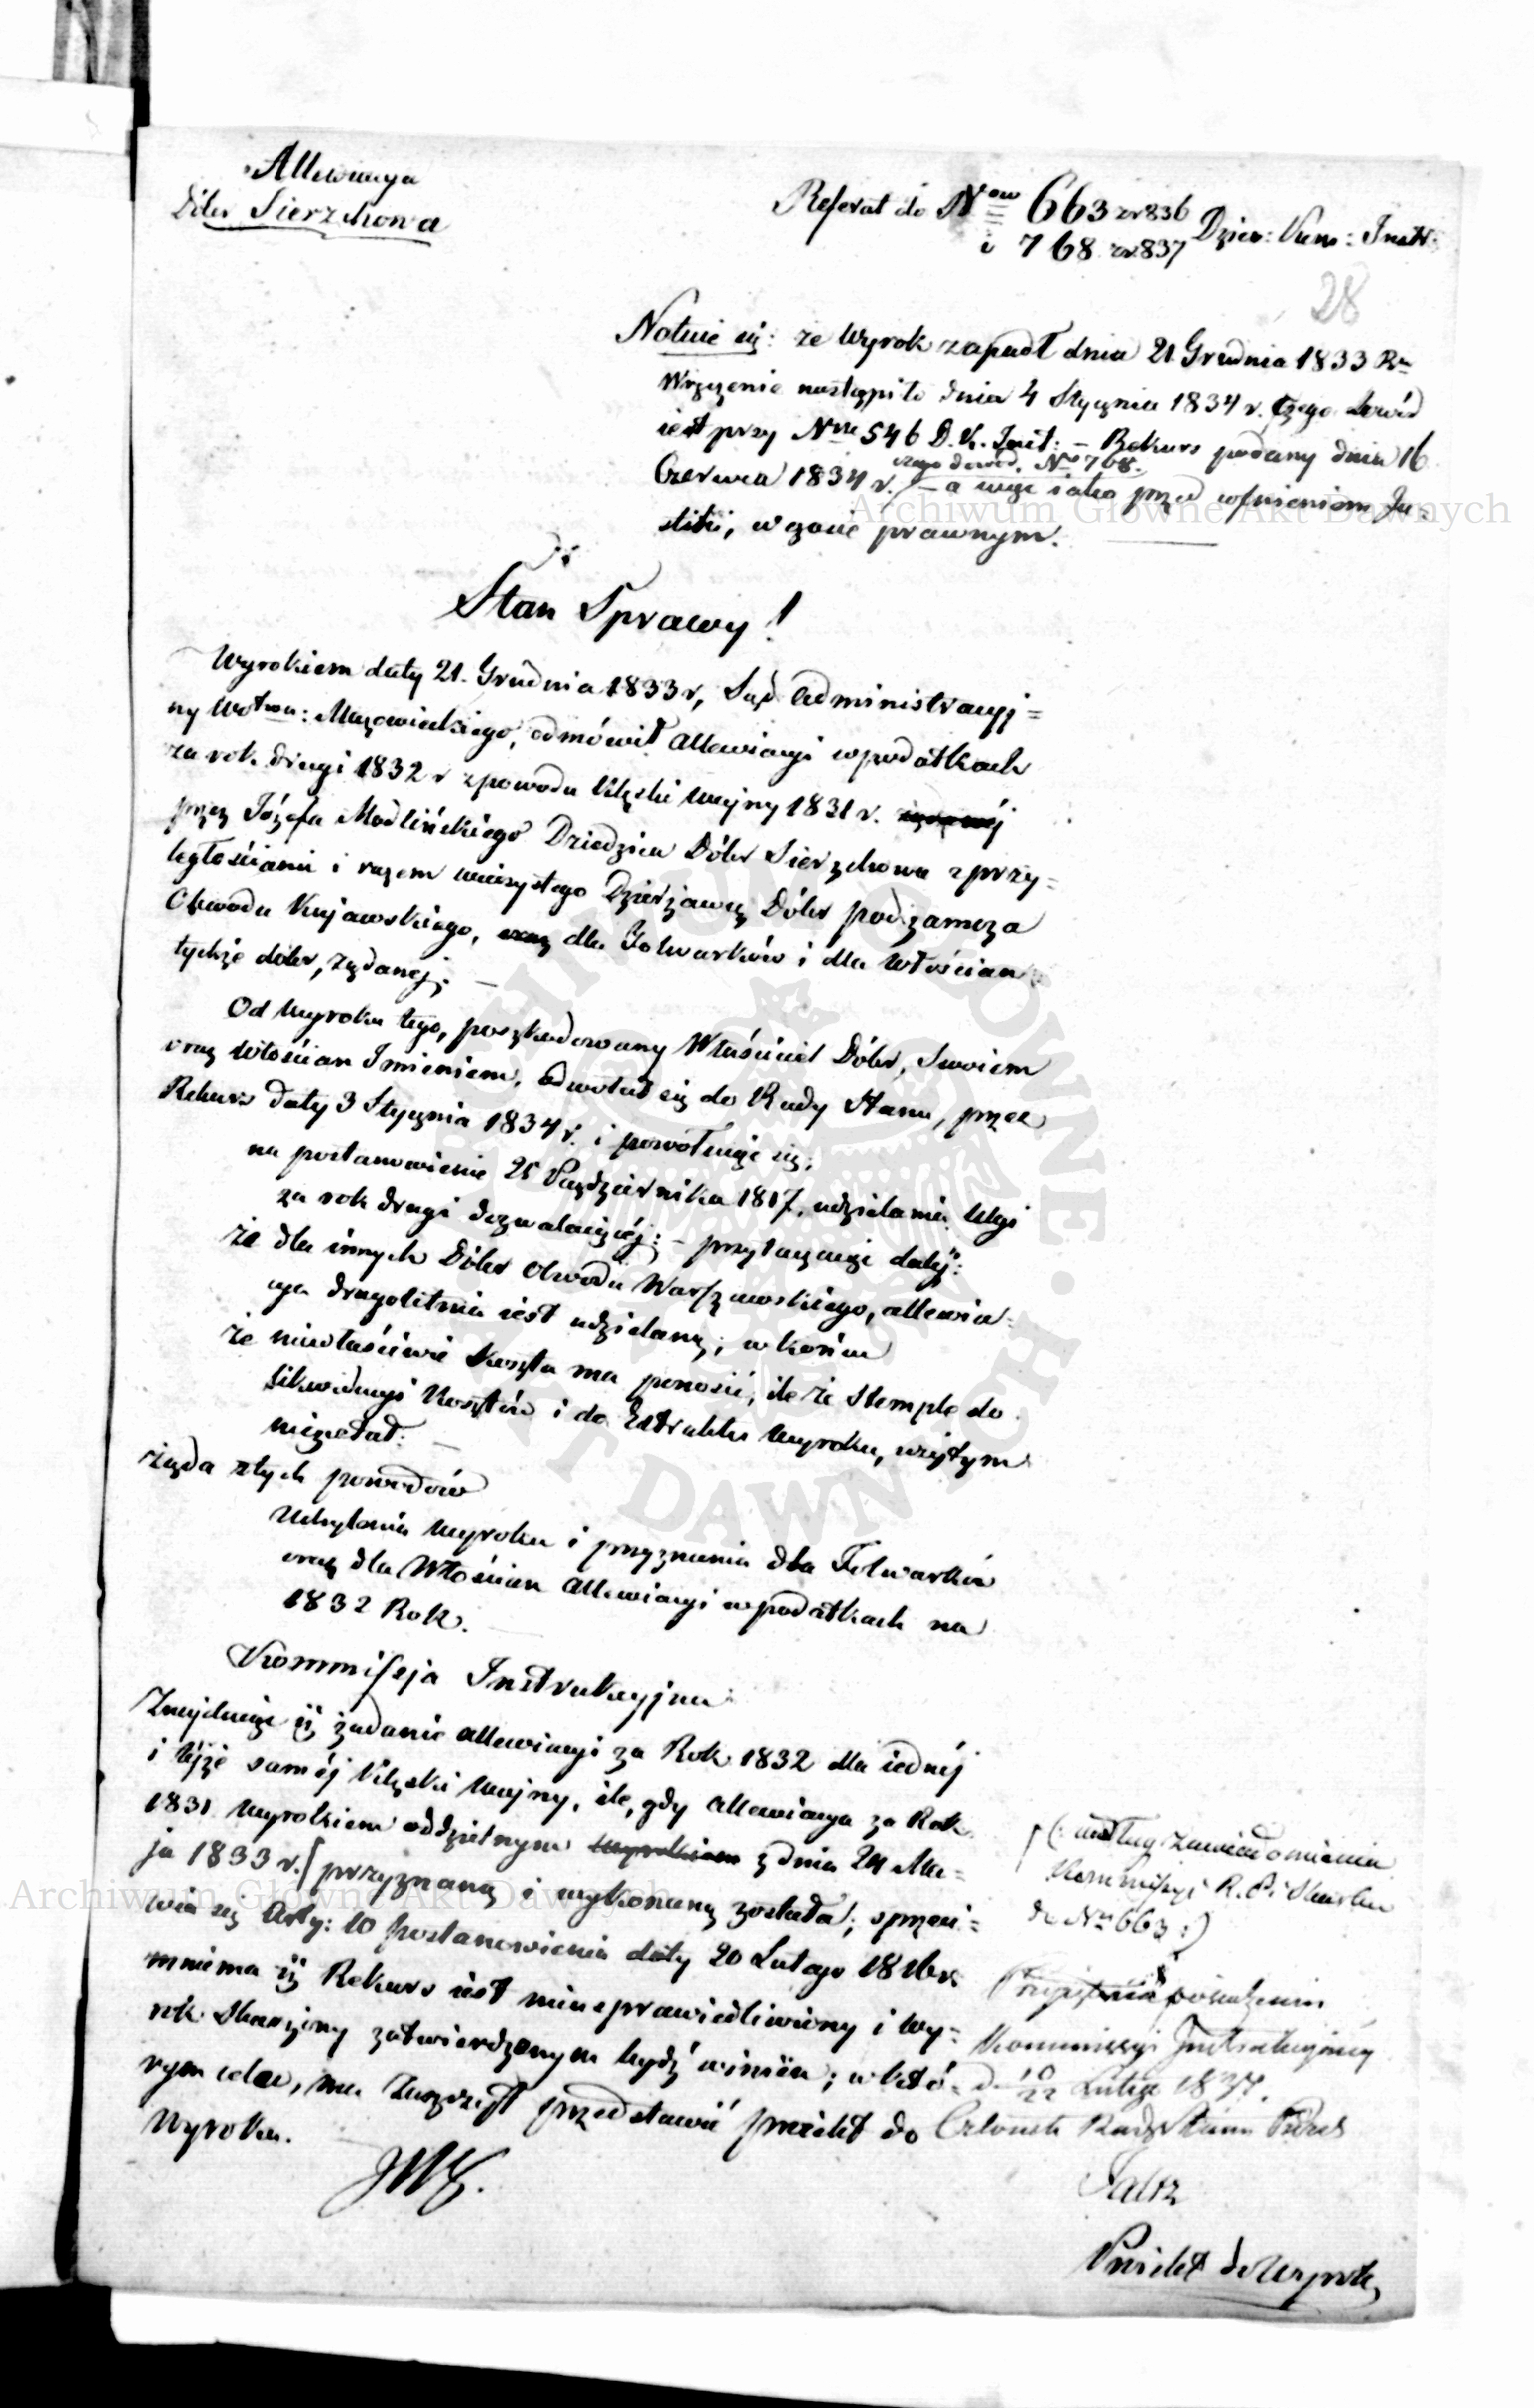 Allewiacya
Dóbr Sierzchowa
Referat do Nrów 663 zr 836
i 768 zr 837 Dzien: Kom: Instr:
28
Notuie się: że Wyrok zapadł dnia 21 Grudnia 1833 R.
Wręczenie nastąpiło dnia 4 Stycznia 1834 r. czego dowód
iest przy Nrze 546 D. K. Inst: – Rekurs podany dnia 16
czego dowód. No 768.
Czerwca 1834 r. – a więc ieszcze przed istnieniem In-
stukcji, w czasie prawnym.
Stan Sprawy!
Wyrokiem daty 21. Grudnia 1833 r, Sąd Administracyj=
ny Wotwa: Mazowieckiego, odmówił allewiacyi w podatkach
za rok drugi 1832 r z powodu klęski wojny 1831 r.
przez Józefa Modlińskiego Dziedzica Dóbr Sierzchowa z przy=
ległościami i razem wieczystego Dzierżawcę Dóbr podzamcza
Obwodu Kujawskiego, dla Folwarków i dla Włościan
tychże dóbr, żądanej; –
Od wyroku tego, poszkodowany Właściciel Dóbr, Swoiem
oraz Włościan Imieniem, odwołał się do Rady Stanu, przez
Rekurs daty 3 Stycznia 1834 r. i powołuie się;
na postanowienie 25 Października 1817, udzielania ulgi
za rok drugi dozwalaiącéj; – przytaczaiąc daléj:
że dla innych Dóbr Obwodu Warszawskiego, allewia=
cya drugoletnia iest udzieloną; w końcu
że niewłaściwie koszta ma ponosić, ile że stemple do
likwidacyi kosztów i do Extraktu wyroku, użytym
nie został. –
żąda z tych powodów
Uchylenia wyroku i przyznania dla Folwarków
oraz dla Włościan allewiacyi w podatkach na
1832 Rok. –
Kommissja Instrukcyjna
Znajduiąc iż żądanie allewiacyi za Rok 1832 dla iednéj
i téjże saméj klęski wojny, ile, gdy allewiacya za Rok
1831 wyrokiem oddzielnym wyrokiem z dnia 24 Ma=
ja 1833 r. przyznaną i wykonaną została; sprzeci=
wia się Arty: 10 postanowienia daty 20 Lutego 1816 r.
mniema iż Rekurs iest nieusprawiedliwiony i wy=
rok skarżony zatwierdzonym bydź winien; w któ=
rym celu, ma zaszczyt przedstawić proiekt do
Wyroku.
(: według zawiadomienia
Kommissyi R. P. i Skarbu
do Nru 663 :)
Przyięto na posiedzeniu
Kommissyi Instrukcyjnéj
d 10/22 Lutego 1837.
Członek Rady Stanu
Faltz
Proiekt do Wyroku